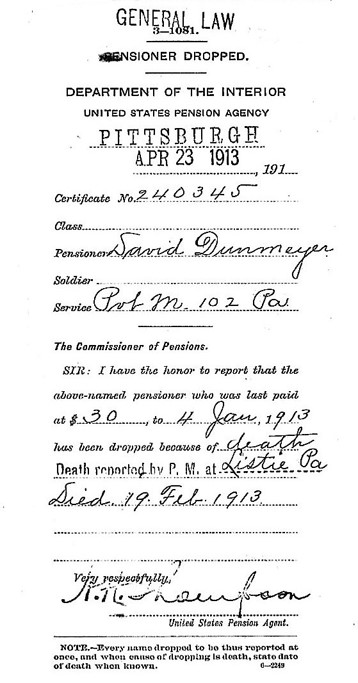 GENERAL LAW
3—1081.
PENSIONER DROPPED.
DEPARTMENT OF THE INTERIOR
UNITED STATES PENSION AGENCY
PITTSBURGH
APR 23 1913
, 191
Certificate No. 240345
Class
Pensioner David Dunmeyer
Soldier
Service Pvt M. 102 Pa
The Commissioner of Pensions.
SIR: I have the honor to report that the
above-named pensioner who was last paid
at $ 30, to 4 Jan, 1913
has been dropped because of death
Death reported by P. M. at Listie Pa
Died 19 Feb 1913
Very respectfully,
Thompson
United States Pension Agent.
NOTE.—Every name dropped to be thus reported at
once, and when cause of dropping is death, state date
of death when known.
6—2249